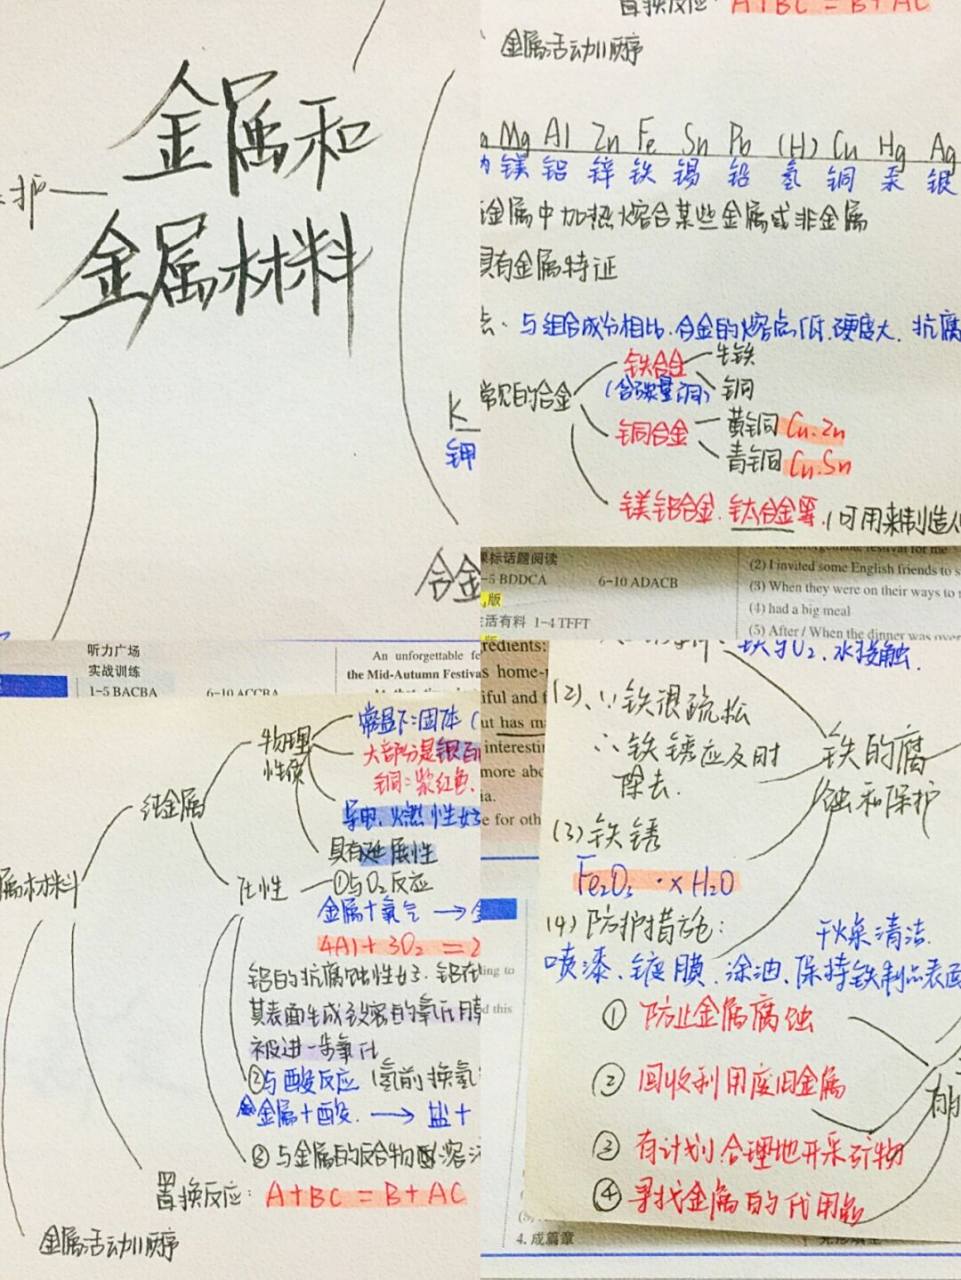 金属和
金属材料
护
K
钾
合金
置换反应: A+BC=B+AC
金属活动顺序
Mg Al Zn Fe Sn Pb (H) Cu Hg Ag
镁 铝 锌 铁 锡 铅 氢 铜 汞 银
金属中加热熔合某些金属或非金属
具有金属特证
与组合成分相比.合金的熔点低.硬度大.抗腐
常见的合金
铁合金
(含碳量不同)
生铁
钢
铜合金
黄铜 Cu.Zn
青铜 Cu.Sn
镁铝合金.钛合金等.(可用来制造
课标话题阅读
1-5 BDDCA 6-10 ADACB
版
生活有料 1-4 TFFT
(2) I invited some English friends to
(3) When they were on their ways to
(4) had a big meal
(5) After / When the dinner was over
听力广场
实战训练
1-5 BACBA 6-10 ACCBA
An unforgettable
the Mid-Autumn Festiva
属材料
纯金属
物理
性质
常温下:固体(
大部分是银白
铜:紫红色.
导电.
具有延展性
化性
①与O2反应
金属+氧气 →
4Al+3O2=2
铝的抗腐蚀性好.铝在
其表面生成致密的氧化膜
被进一步氧化
②与酸反应 (氢前换氢
金属+酸. → 盐+
③与金属的化合物
置换反应: A+BC=B+AC
金属活动顺序
redients:
home-
iful and
but has
interesti
more abo
e for oth
铁与O2、水接触.
(2)、∵铁很疏松
∴铁锈应及时
除去.
铁的腐
蚀和保护
(3)铁锈
Fe2O3·xH2O
(4)防护措施:
干燥清洁.
喷漆、镀膜、涂油、保持铁制品表面
①防止金属腐蚀
②回收利用废旧金属
③有计划.合理地开采矿物
④寻找金属的代用品
4. 成篇章